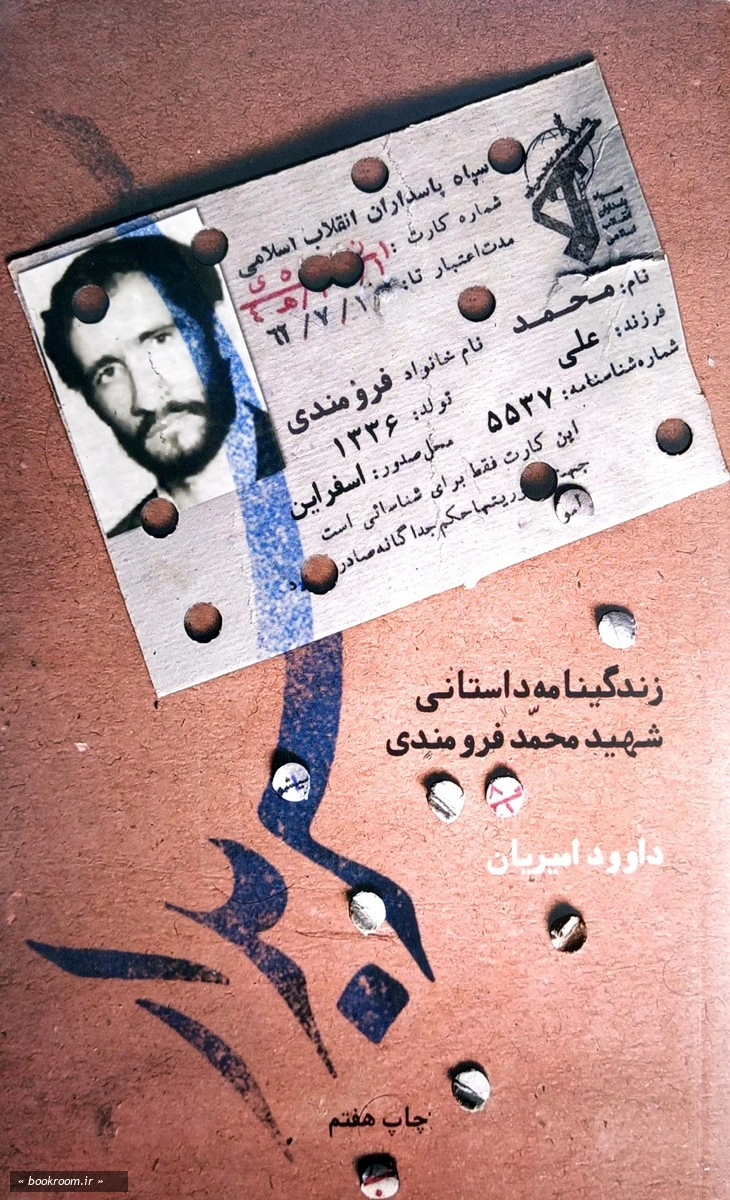 سپاه پاسداران انقلاب اسلامی
شماره کارت :
مدت اعتبار تا: ۶۲/۷/۱
نام: محمد
نام خانواد فرومندی
فرزند: علی
تولد: ۱۳۳۶
شماره شناسنامه: ۵۵۳۷
محل صدور: اسفراین
این کارت فقط برای شناسائی است
حکم جداگانه صادر
زندگینامه داستانی
شهید محمّد فرومندی
داوود امیریان
چاپ هفتم
« bookroom.ir »